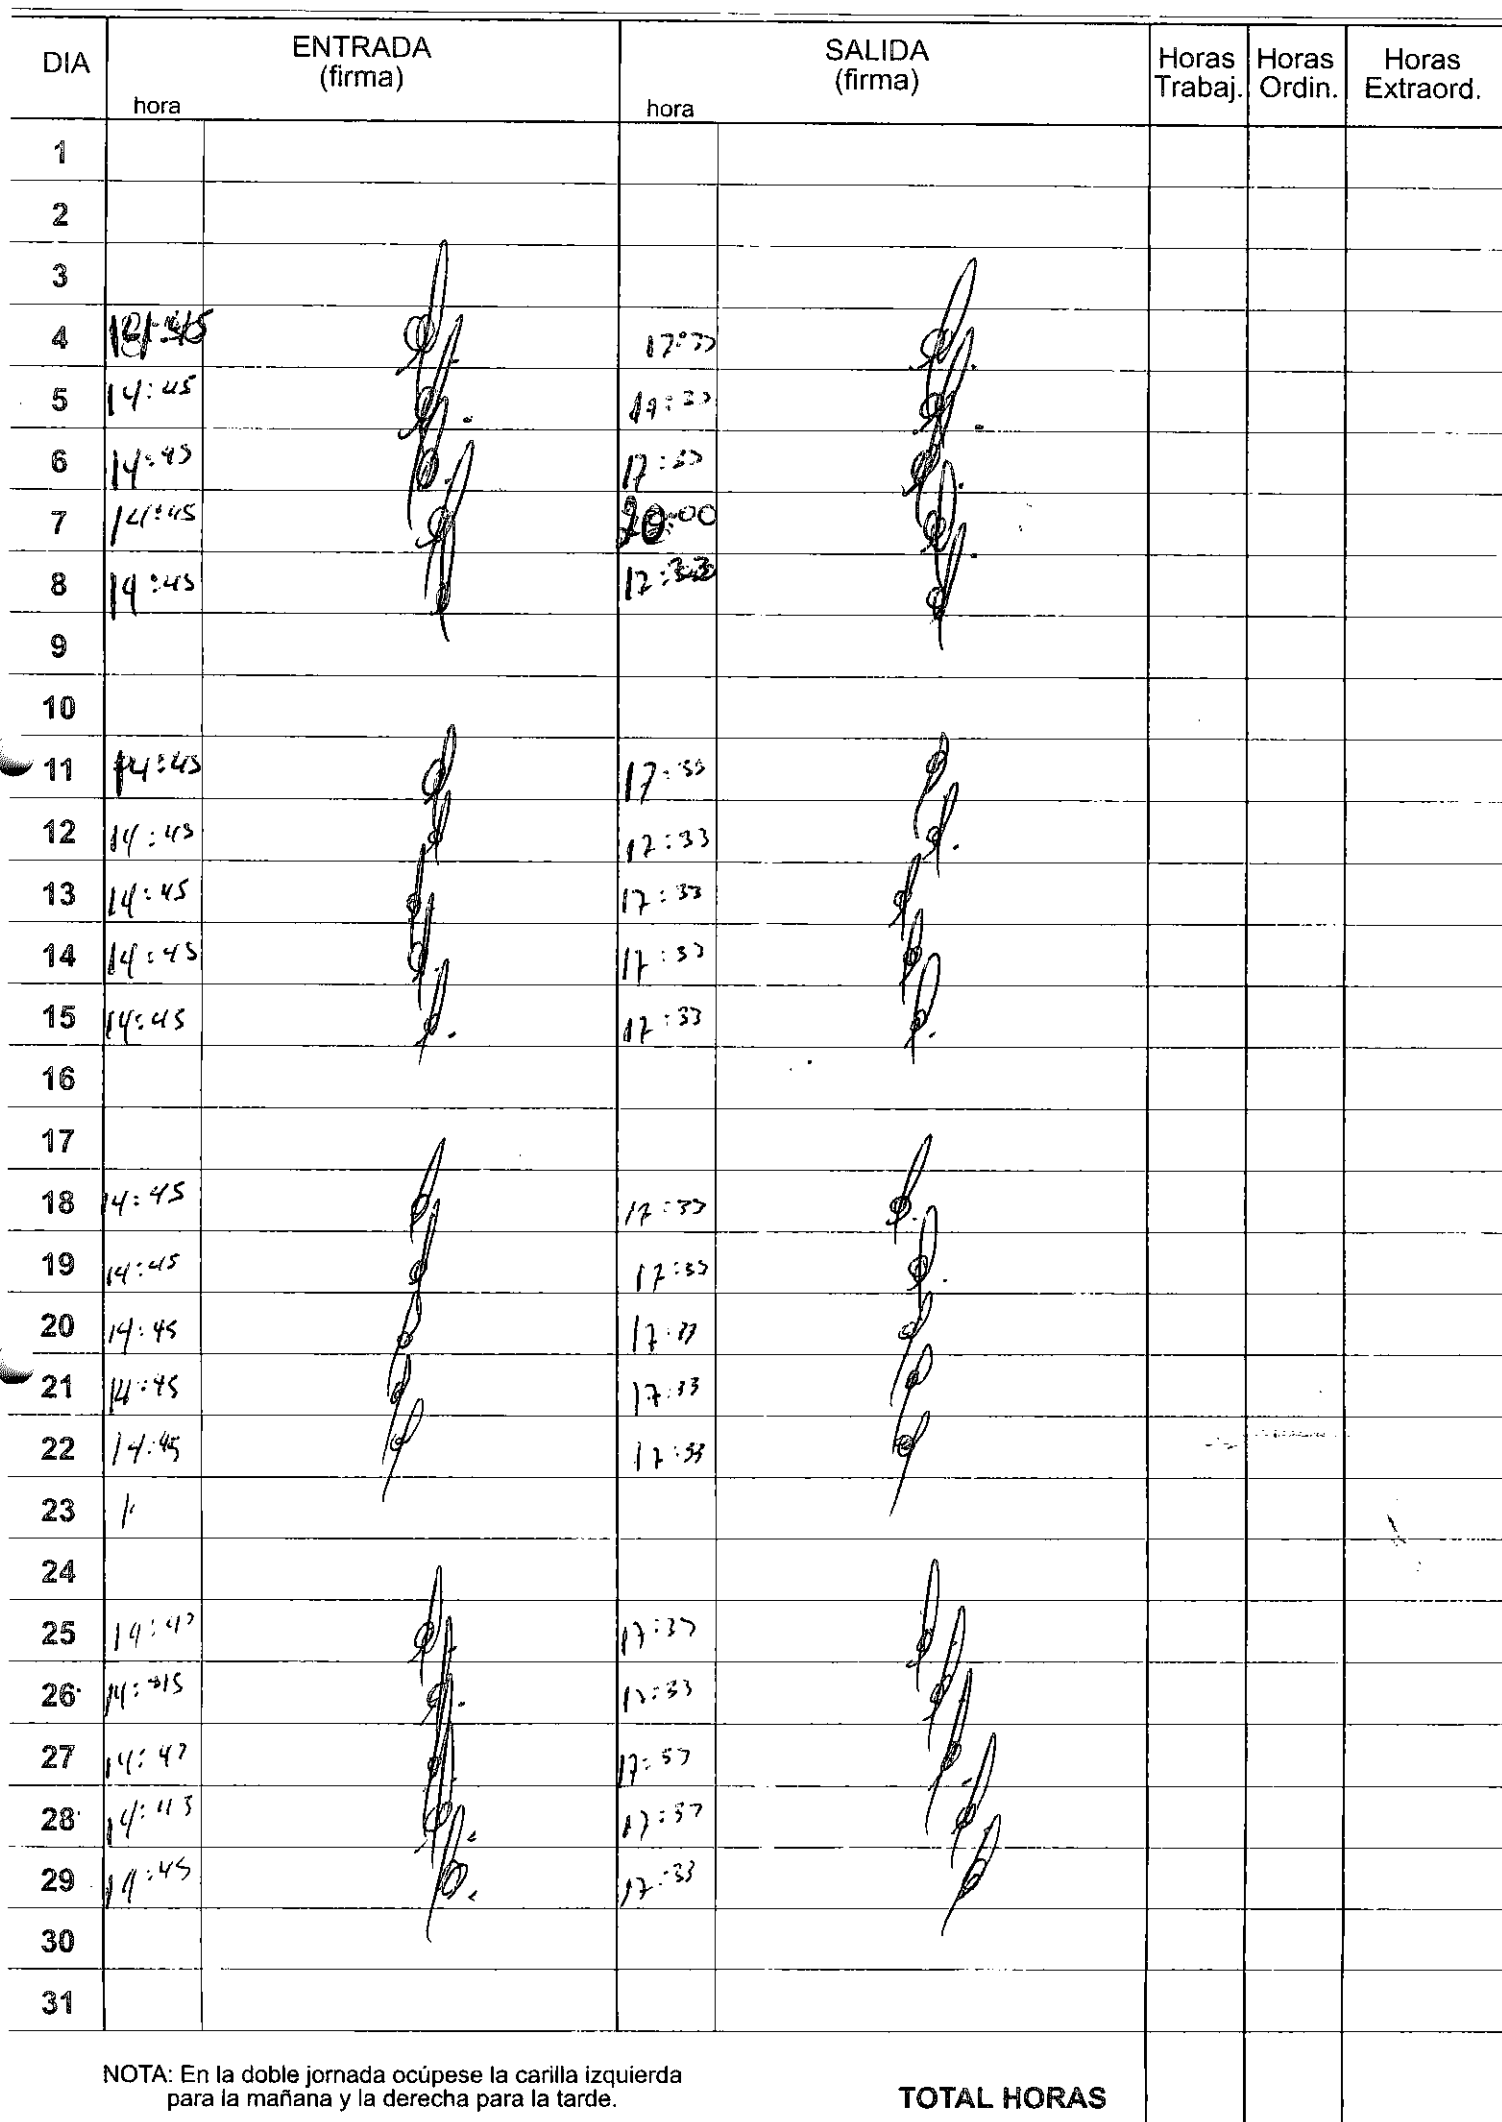 DIA ENTRADA (firma) hora SALIDA (firma) hora Horas Trabaj. Horas Ordin. Horas Extraord.
1
2
3
4 17:33
5 14:45
6 14:45 17:33
7 14:45 20:00
8 14:45 17:33
9
10
11 14:45 17:33
12 14:45 17:33
13 14:45 17:33
14 14:45 17:33
15 14:45 17:33
16
17
18 14:45 17:33
19 14:45 17:33
20 14:45 17:33
21 14:45 17:33
22 14:45 17:33
23
24
25 17:33
26 14:45 17:33
27
28 17:33
29 14:45 17:33
30
31
NOTA: En la doble jornada ocúpese la carilla izquierda
para la mañana y la derecha para la tarde.
TOTAL HORAS